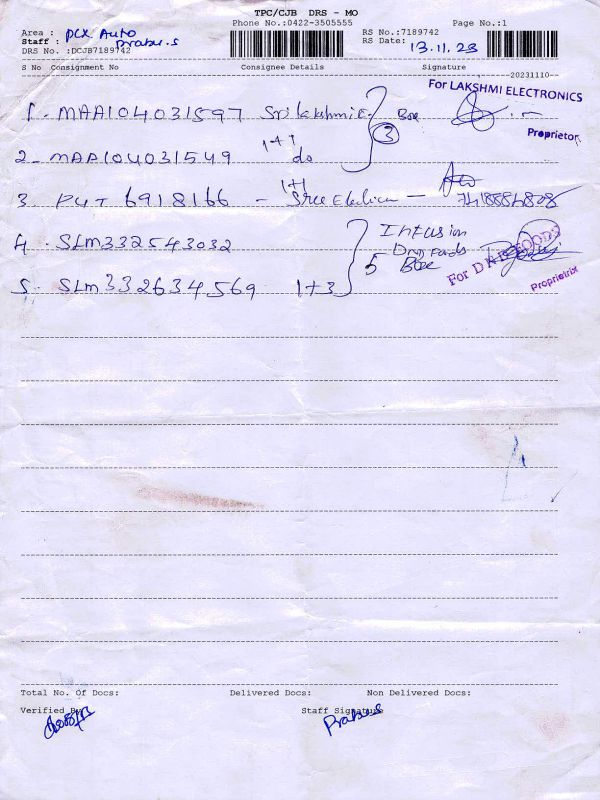 TPC/CJB DRS - MO
Phone No.:0422-3505555 Page No.:1
Area : PCX Auto
Staff : Prabu.S
DRS No. :DCJB7189742
RS No.:7189742
RS Date: 13.11.23
S No Consignment No Consignee Details Signature
20231110
For LAKSHMI ELECTRONICS
1 - MAA104031597 Sri Lakshmi E. Box
Proprietor
1+1 3
2 - MAA104031549 do
3 PUT 6918166 - 1+1 Sree -
4 - SLM332543032 Intusion
Foods
5 Box
For D FOODS
5 - SLM332634569 1+3
Proprietrix
Total No. Of Docs: Delivered Docs: Non Delivered Docs:
Verified By Staff Signature
Prabu.S